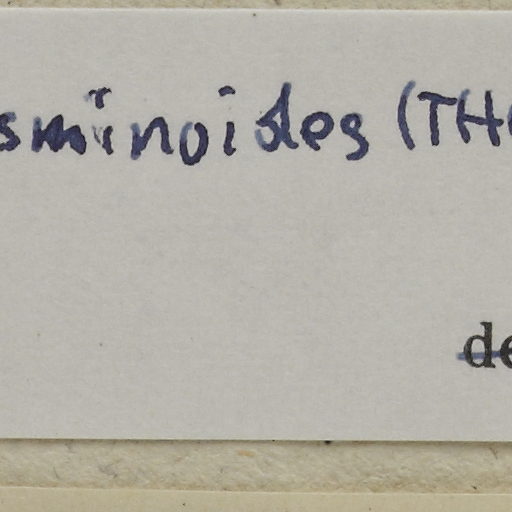 sminoides (TH
de